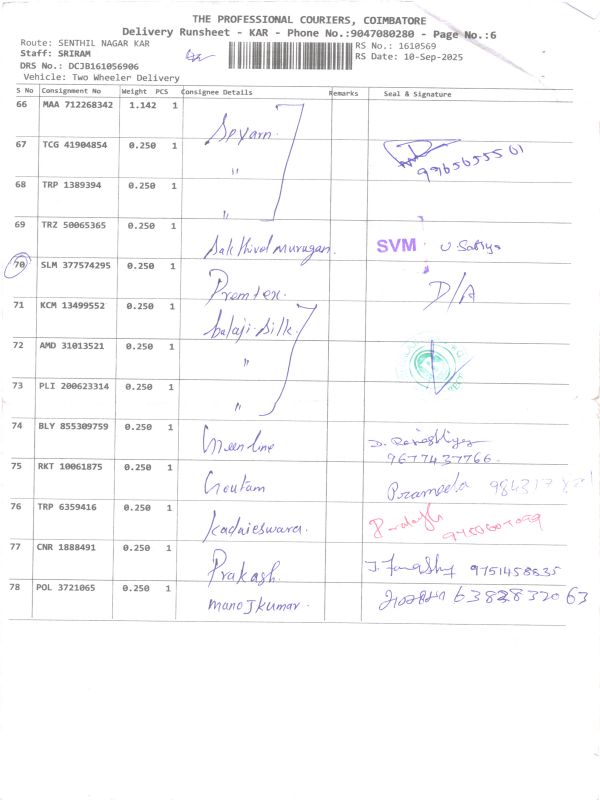 THE PROFESSIONAL COURIERS, COIMBATORE
Delivery Runsheet - KAR - Phone No.:9047080280 - Page No.:6
Route: SENTHIL NAGAR KAR
RS No.: 1610569
Staff: SRIRAM
RS Date: 10-Sep-2025
DRS No.: DCJB161056906
Vehicle: Two Wheeler Delivery
S No Consignment No Weight PCS Consignee Details Remarks Seal & Signature
66 MAA 712268342 1.142 1
67 TCG 41904854 0.250 1 " 9965655561
68 TRP 1389394 0.250 1 "
69 TRZ 50065365 0.250 1 Sakthivel murugan. SVM
70 SLM 377574295 0.250 1 Premtex. D/A
71 KCM 13499552 0.250 1 balaji silk
72 AMD 31013521 0.250 1 "
73 PLI 200623314 0.250 1 "
74 BLY 855309759 0.250 1 Greenline
9677437766.
75 RKT 10061875 0.250 1 Goutam Prameela
76 TRP 6359416 0.250 1
77 CNR 1888491 0.250 1 Prakash. 9751458835
78 POL 3721065 0.250 1 manojkumar. 6382832063